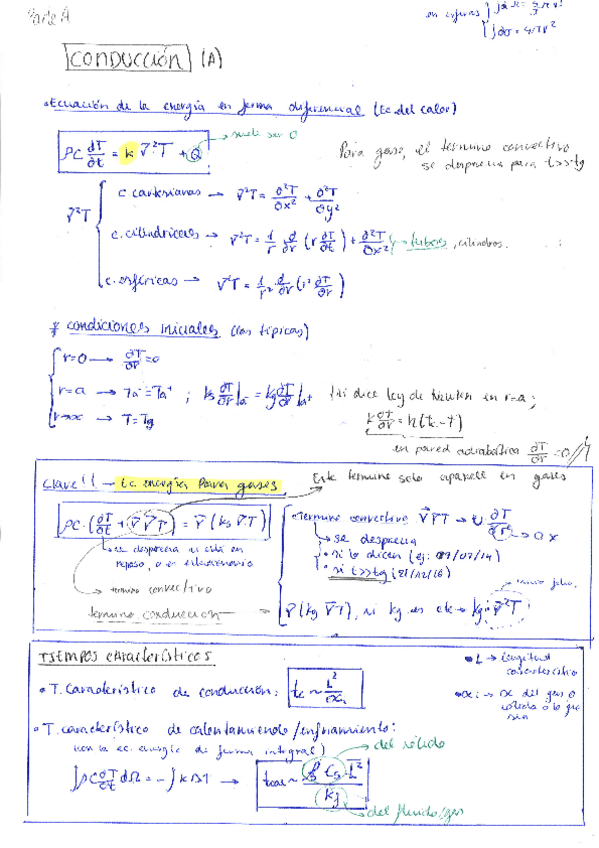 Parte A
en esferas { ∫dΩ = 4/3 πr³
∫dσ = 4πr²
CONDUCCIÓN (A)
• Ecuación de la energía en forma diferencial (Ec. del calor)
ρC ∂T/∂t = k ∇²T + Q → suele ser 0
Para gases, el termino convectivo
se desprecia para t>>tg
∇²T
c. cartesianas → ∇²T = ∂²T/∂x² + ∂²T/∂y²
c. cilindricas → ∇²T = 1/r ∂/∂r (r ∂T/∂t) + ∂²T/∂x² → tubos, cilindros.
c. esféricas → ∇²T = 1/r² ∂/∂r (r² ∂T/∂r)
* condiciones iniciales (las típicas)
r=0 → ∂T/∂r = 0
r=a → Ta⁻ = Ta⁺ ; ks ∂T/∂r|a⁻ = kg ∂T/∂r|a⁺ (si dice ley de Newton en r=a;
k ∂T/∂r = h(
r→∞ → T = Tg
en pared adiabática ∂T/∂r = 0
Clave!! → Ec. energía para gases
Este termino solo aparece en gases
ρC·(∂T/∂t + v̄ ∇T) = ∇(kg ∇T)
se desprecia si está en
reposo, o es estacionario
termino convectivo
termino conduccion
termino convectivo v̄ ∇T → U ∂T/∂r → o x
→ se desprecia
• si lo dicen (ej: 09/07/14)
• si t>>tg (21/12/16)
∇(kg ∇T), si kg es cte → kg · ∇²T
TIEMPOS CARACTERÍSTICOS
• L → longitud
característico
• αi → α del gas o
sólido o lo que
sea
• T. característico de conducción: tc ~ L²/αi
• T. característico de calentamiento/enfriamiento:
(con la ec. energía de forma integral)
∫ρC ∂T/∂t dΩ = -∫k ∇T → tcal ~ ρs Cs L²/kg
del sólido
del fluido/gas